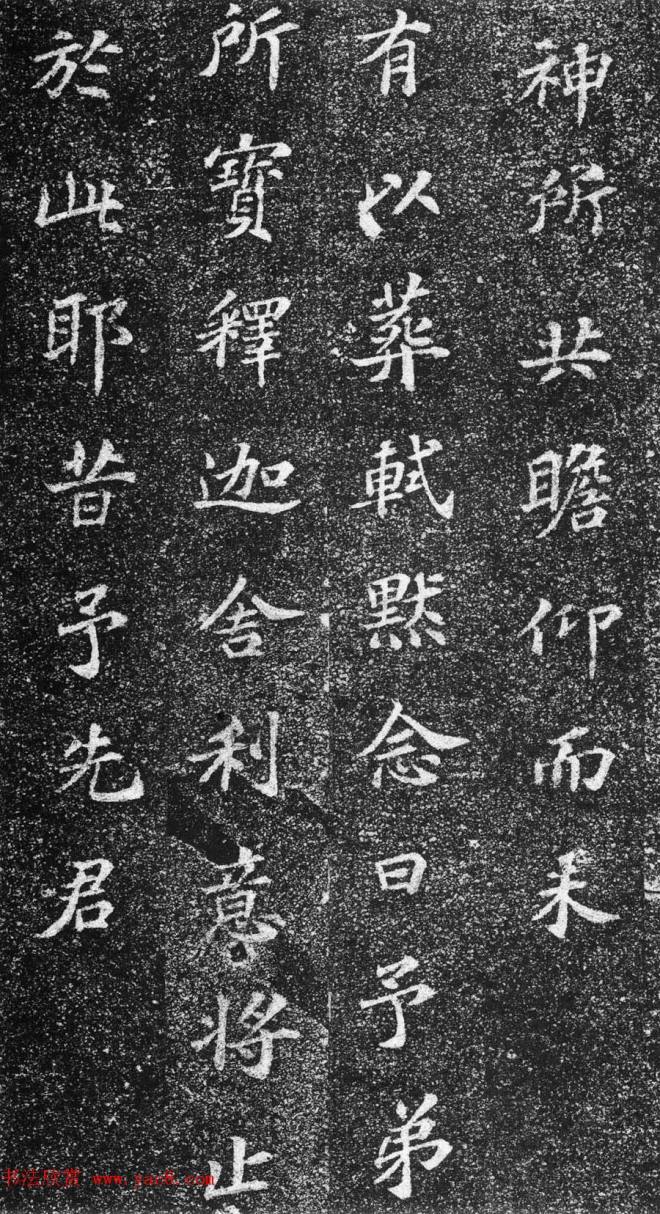 神所共瞻仰而未
有以葬軾默念曰予弟
所寶釋迦舍利意將止
於此耶昔予先君
书法欣赏 www.yac8.com